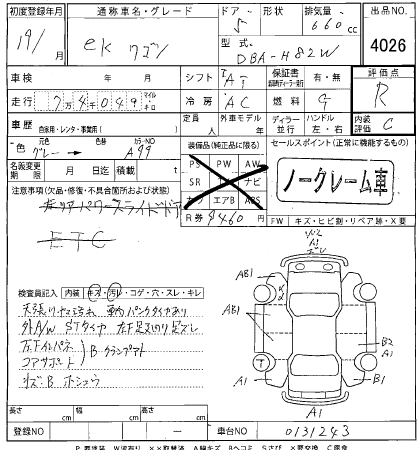 初度登録年月
19/ 月
通称車名・グレード
ek ワゴン
ドア 5
形状
排気量 660 cc
型式 DBA-H82W
出品NO.
4026
車検 年 月
シフト AT
保証書 有・無
評価点 R
走行 7万4千049 マイル キロ
冷房 AC
燃料 G
内装 評価 C
車歴 自家用・レンタ・事業用( )
定員 人
外車モデル 年
ディーラー 並行
ハンドル 左・右
色 グレー → A99
カラーNO
装備品(純正品に限る)
PS PW AW
SR ナビ
エアB ABS
R券 9460 円
セールスポイント(正常に機能するもの)
ノークレーム車
名義変更期限 月 日
積載 t
注意事項(欠品・修復・不具合箇所および状態)
リアパワースライドドア
ETC
FW キズ・ヒビ割・リペア跡・X要
検査員記入 内装 キズ・汚レ・コゲ・穴・スレ・キレ
天張りヨゴレ 車内パンクタイヤあり
外A/W STタイヤ 左下足廻り足ズレ
左下インパネ
コアサポート
B クランプアト
W2
A1
AB1
AB1
B2
A1
T
A1
B1
A1
長さ cm
幅 cm
高さ cm
登録NO
車台NO 0131243
P要塗装 W波有り ××取替済 A線キズ Bヘコミ Sさび ×要交換 C腐食